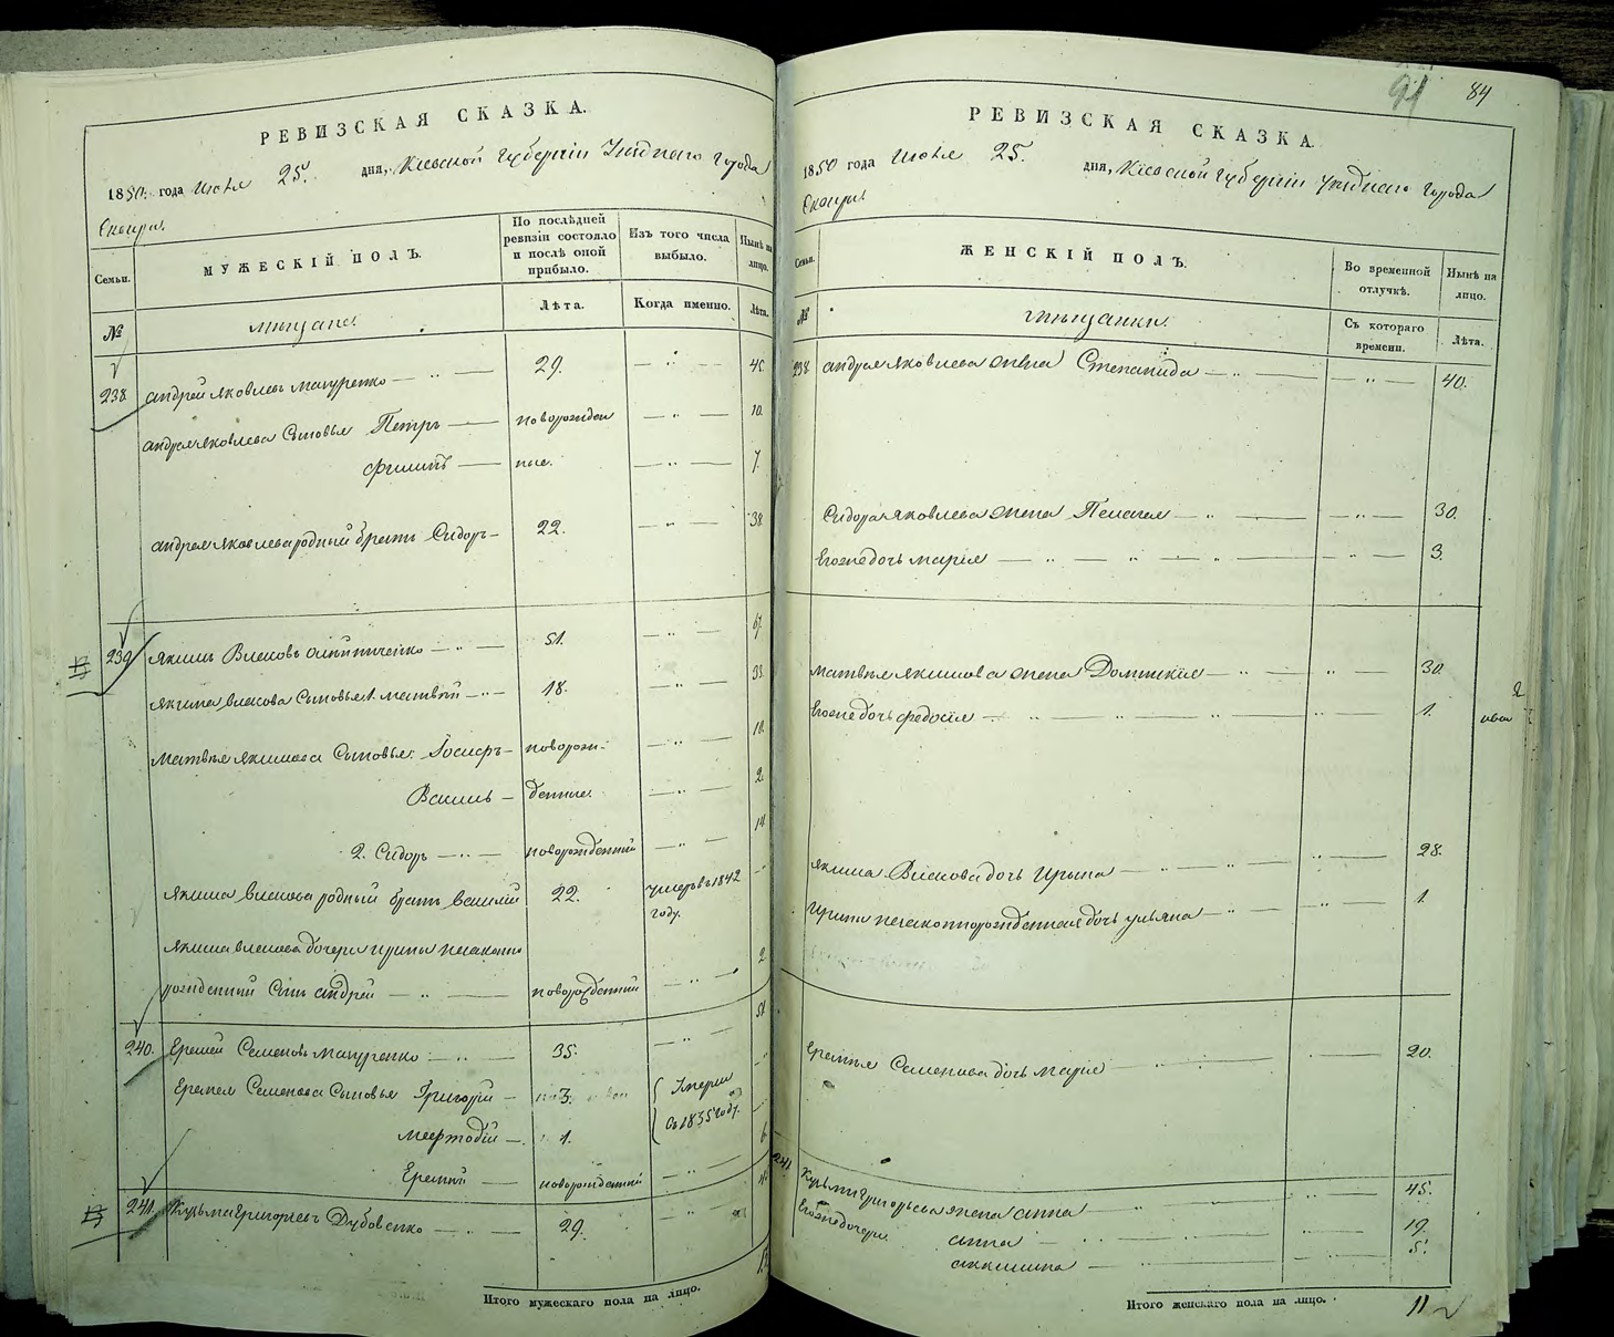 РЕВИЗСКАЯ СКАЗКА.
1850. года Июля 25. дня, Кіевской Губерніи Уѣзднаго Города
Сквиры.
Семьи.
МУЖЕСКІЙ ПОЛЪ.
По послѣдней
ревизіи состояло
и послѣ оной
прибыло.
Изъ того числа
выбыло.
Нынѣ на
лицо.
№
мещане.
Лѣта.
Когда именно.
Лѣта.
238 андрей яковлевъ мачуренко — „ — 29. — „ — 45.
андрея яковлева Сыновья Петръ — новорожден — „ — 10.
филипъ — ные. — „ — 7.
андрея яковлева родный братъ Сидоръ — 22. — „ — 38.
239 якимъ Власовъ — „ — 51. — „ — 67.
якима власова Сыновья 1. матвѣй — „ — 18. — „ —
матвѣя якимова Сыновья: Іосифъ — новорож- — „ — 10.
Василь — денные. — „ — 2.
2. Сидоръ — „ — новорожденный — „ — 14.
якима власова родный братъ василій 22. умеръ въ 1842
году.
якима власова дочери ирины незаконно
рожденный Сынъ андрей — „ — новорожденный — „ — 2.
240. Еремей Семеновъ мачуренко — „ — 35. — „ — 51.
Еремея Семенова Сыновья Григорій — 3.
мефтодій — 1. Съ 1835 году.
Еремей — новорожденный — „ — 6.
241. Кузьма Григорьевъ Дубовенко — „ — 29. — „ —
Итого мужескаго пола на лицо.
91 84
РЕВИЗСКАЯ СКАЗКА.
1850 года Июля 25. дня, Кіевской Губерніи Уѣзднаго Города
Сквиры.
Семьи.
ЖЕНСКІЙ ПОЛЪ.
Во временной
отлучкѣ.
Нынѣ на
лицо.
№
мещанки.
Съ котораго
времени.
Лѣта.
238 андрея яковлева жена Степанида — „ — — „ — 40.
Сидора яковлева жена Пелагея — „ — — „ — 30.
Егоже дочь марія — „ — „ — „ — 3.
матвѣя якимова жена Домникія — „ — „ — 30.
Егоже дочь федосія — „ — „ — „ — 1.
якима Власова дочь Ирина — „ — „ — 28.
Ирины незаконнорожденная дочь ульяна — „ — „ — 1.
Еремея Семенова дочь марія — „ — 20.
241 Кузьмы Григорьева жена анна — „ — 45.
Егоже дочери
анна — „ — 19.
— „ — 5.
Итого женскаго пола на лицо. 11